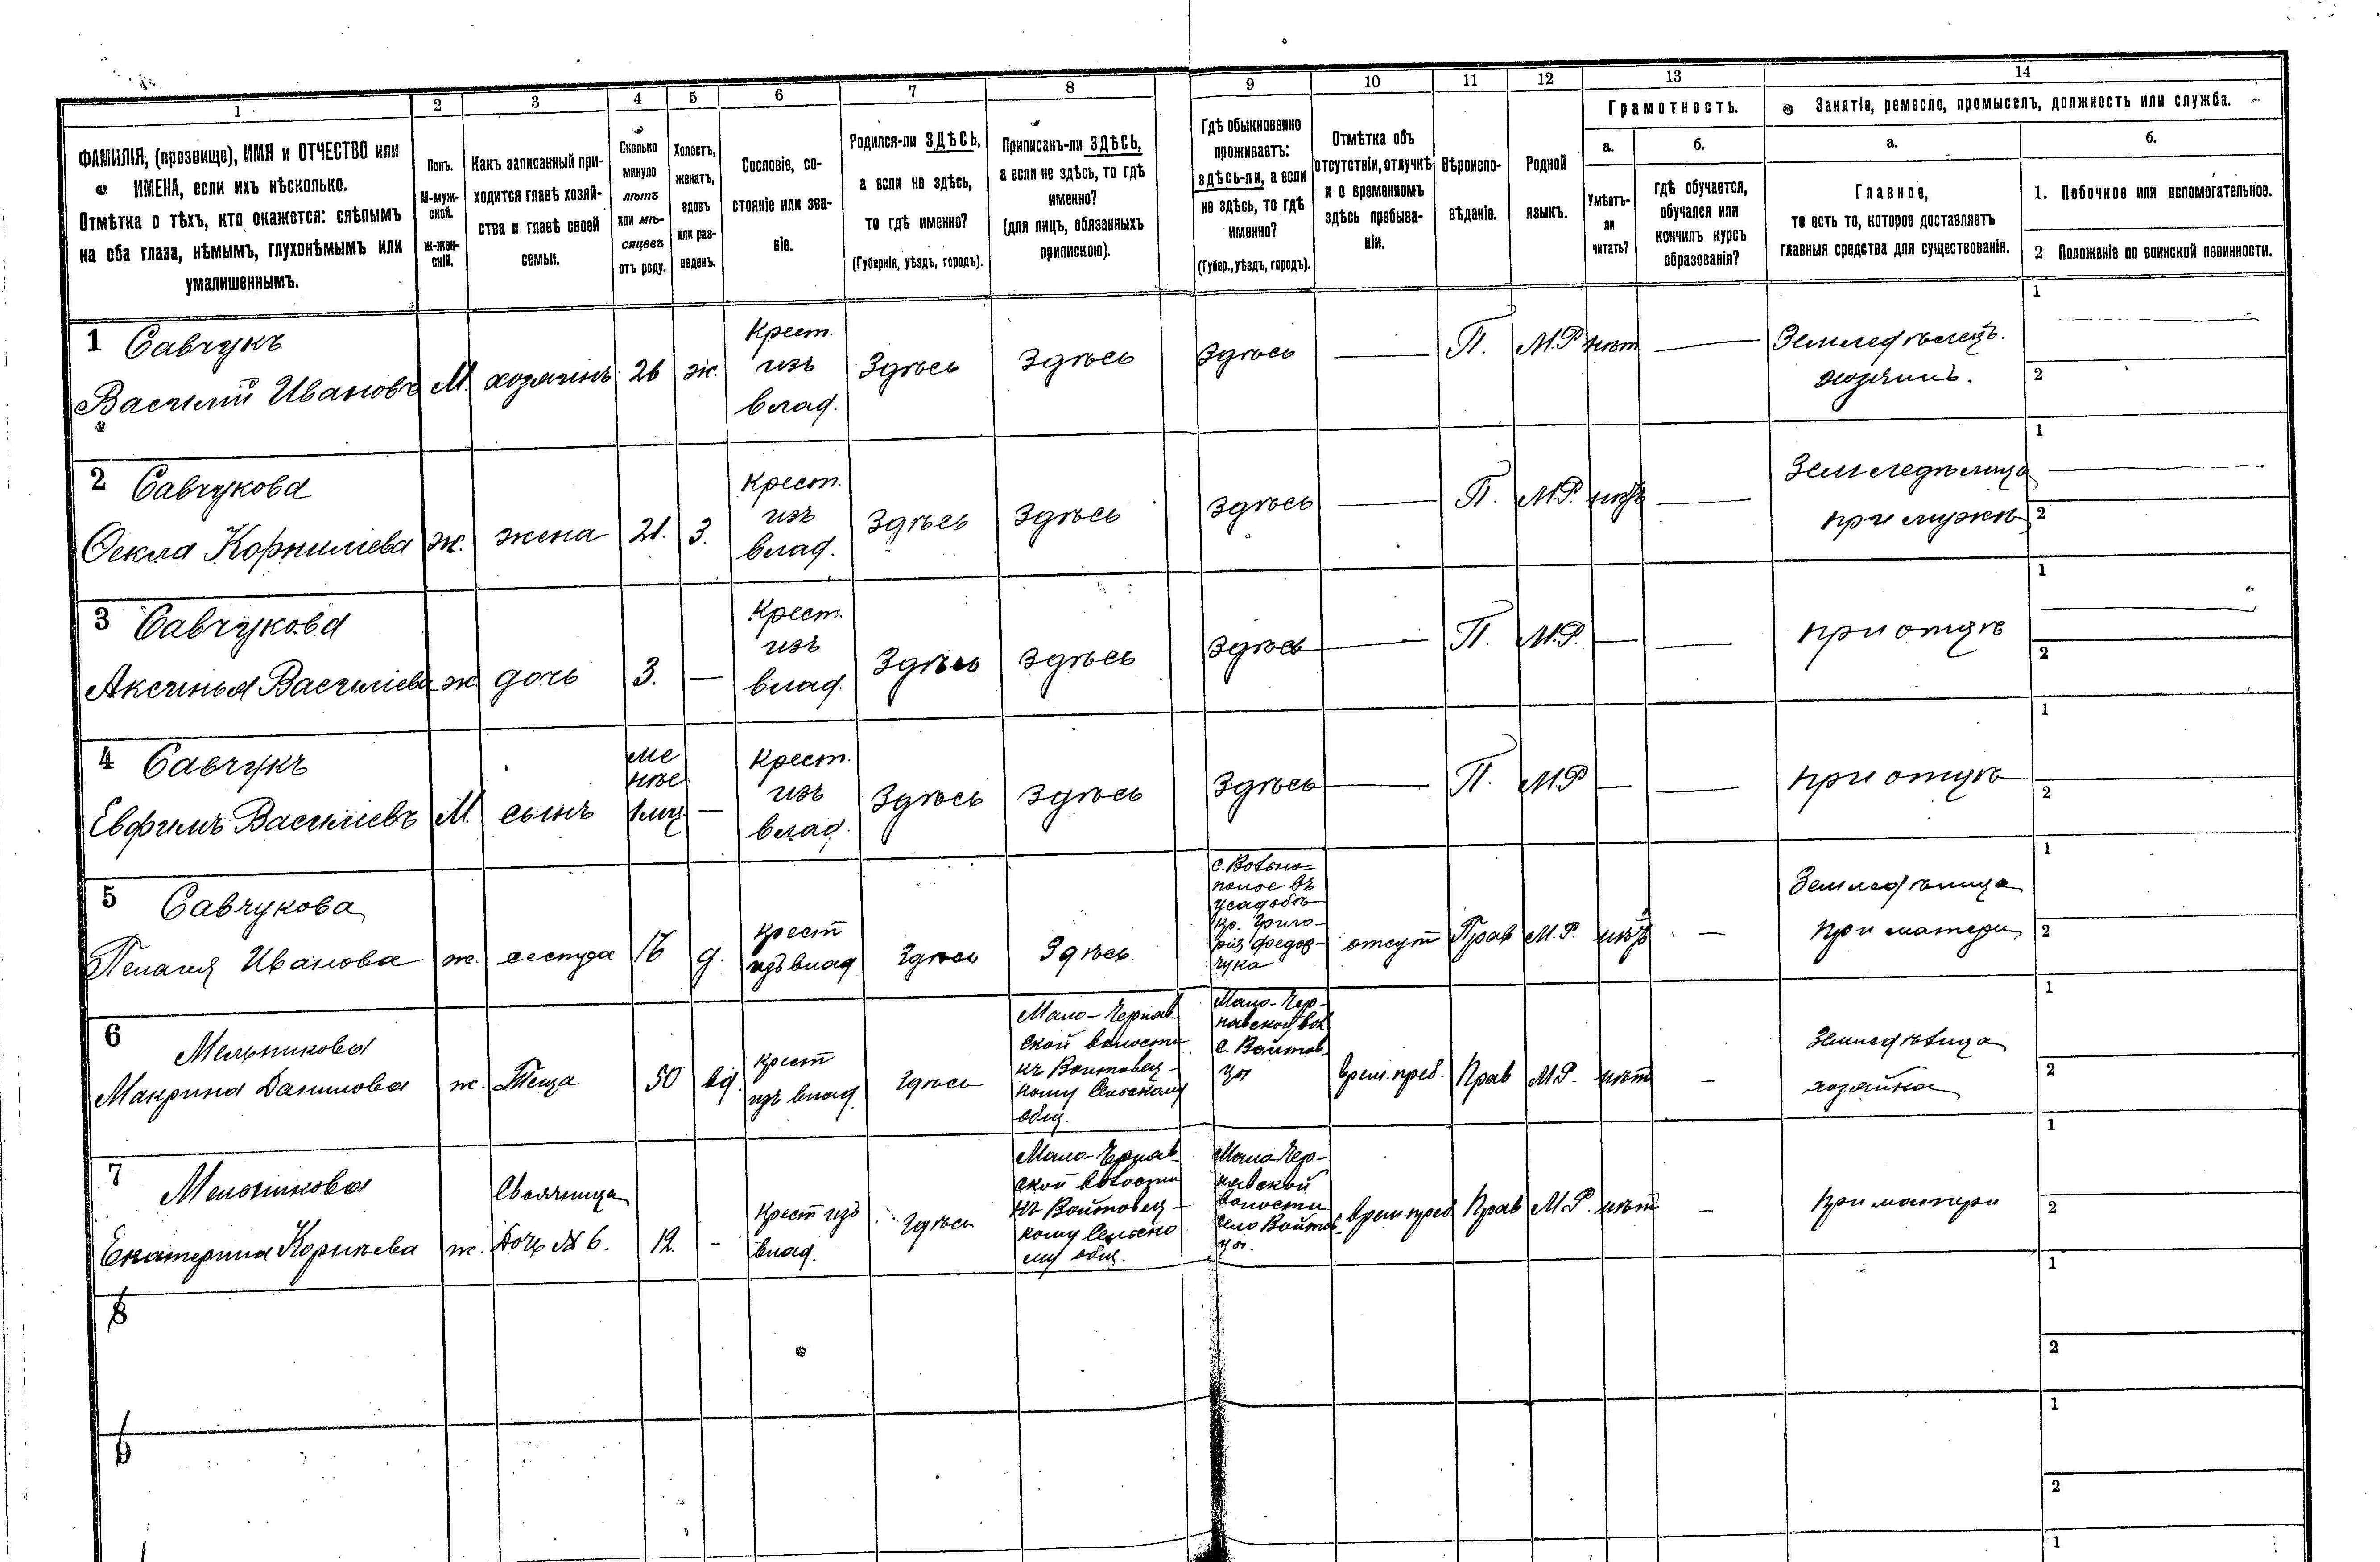 1 2 3 4 5 6 7 8 9 10 11 12 13 14
ФАМИЛІЯ, (прозвище), ИМЯ и ОТЧЕСТВО или
ИМЕНА, если ихъ нѣсколько.
Отмѣтка о тѣхъ, кто окажется: слѣпымъ
на оба глаза, нѣмымъ, глухонѣмымъ или
умалишеннымъ.
Полъ.
М-муж-
ской.
Ж-жен-
скій.
Какъ записанный при-
ходится главѣ хозяй-
ства и главѣ своей
семьи.
Сколько
минуло
лѣтъ
или мѣ-
сяцевъ
отъ роду.
Холостъ,
женатъ,
вдовъ
или раз-
веденъ.
Сословіе, со-
стояніе или зва-
ніе.
Родился-ли ЗДѢСЬ,
а если не здѣсь,
то гдѣ именно?
(Губернія, уѣздъ, городъ).
Приписанъ-ли ЗДѢСЬ,
а если не здѣсь, то гдѣ
именно?
(для лицъ, обязанныхъ
припискою).
Гдѣ обыкновенно
проживаетъ:
здѣсь-ли, а если
не здѣсь, то гдѣ
именно?
(Губер., уѣздъ, городъ).
Отмѣтка объ
отсутствіи, отлучкѣ
и о временномъ
здѣсь пребыва-
ніи.
Вѣроиспо-
вѣданіе.
Родной
языкъ.
Грамотность.
а.
Умѣетъ-
ли
читать?
б.
гдѣ обучается,
обучался или
кончилъ курсъ
образованія?
Занятіе, ремесло, промыселъ, должность или служба.
а.
Главное,
то есть то, которое доставляетъ
главныя средства для существованія.
б.
1. Побочное или вспомогательное.
2 Положеніе по воинской повинности.
1 Савчукъ
Василій Ивановъ
М.
хозяинъ
26
ж.
Крест.
изъ
влад.
Здѣсь
Здѣсь
Здѣсь
—
П.
М.Р
нѣт
—
Земледѣлецъ.
хозяинъ.
1
2
2 Савчукова
Ѳекла Корнилiева
ж.
жена
21.
З.
Крест.
изъ
влад.
Здѣсь
Здѣсь
Здѣсь
—
П.
М.Р.
нѣтъ
—
Земледѣлица
при мужѣ
1
2
3 Савчукова
Аксинья Василіева
ж
дочь
3.
—
Крест.
изъ
влад.
Здѣсь
Здѣсь
Здѣсь
—
П.
М.Р.
—
—
при отцѣ
1
2
4 Савчукъ
Евфимъ Василіевъ
М.
сынъ
ме
нѣе
1 мц.
—
Крест.
изъ
влад.
Здѣсь
Здѣсь
Здѣсь
—
П.
М.Р
—
—
при отцѣ
1
2
5 Савчукова
Пелагія Иванова
ж.
сестра
16
д.
Крест
изъ влад
Здѣсь
Здѣсь.
усадьбѣ
кр. Григо-
рія Федор-
чука
отсут
Прав
М.Р.
нѣтъ
—
Земледѣлица
при матери
1
2
6
Мельникова
Макрина Данилова
ж.
Теща
50
вд.
Крест
изъ влад.
Здѣсь
Мало-Черняв-
ской волости
къ Войтовец-
кому Сельскому
общ.
Мало-Чер-
нявской вол
с. Войтов-
цы
врем. преб.
Прав
М.Р.
нѣт
—
Земледѣлица
хозяйка
1
2
7
Мельникова
Екатерина Корнилева
ж.
Своячница
Дочь № 6.
12.
-
Крест изъ
влад.
Здѣсь
Мало-Черняв-
ской волости
къ Войтовец-
кому Сельско
му общ.
Мало Чер-
нявской
волости
село Войтов-
цы.
врем. преб
Прав
М.Р.
нѣт
—
при матери
1
2
8
1
2
1
2
1